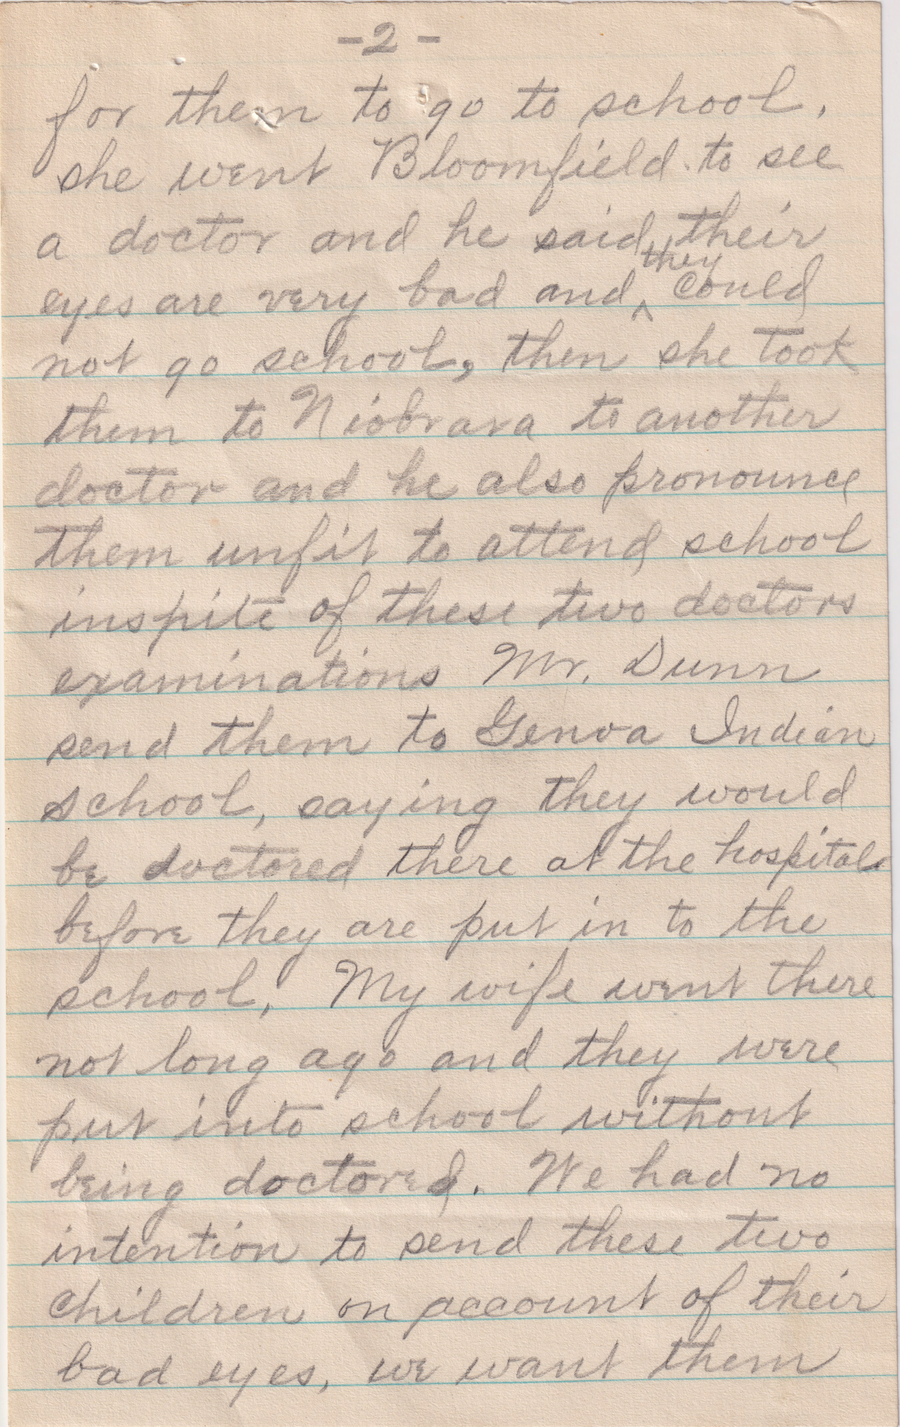 -2-
for them to go to school.
she went Bloomfield to see
a doctor and he said, their
eyes are very bad and they could
not go school, then she took
them to Niobrara to another
doctor and he also pronounce
them unfit to attend school
inspite of these two doctors
examinations Mr. Dunn
send them to Genoa Indian
school, saying they would
be doctored there at the hospital
before they are put in to the
school, My wife went there
not long ago and they were
put into school without
being doctored. We had no
intention to send these two
children on account of their
bad eyes, we want them